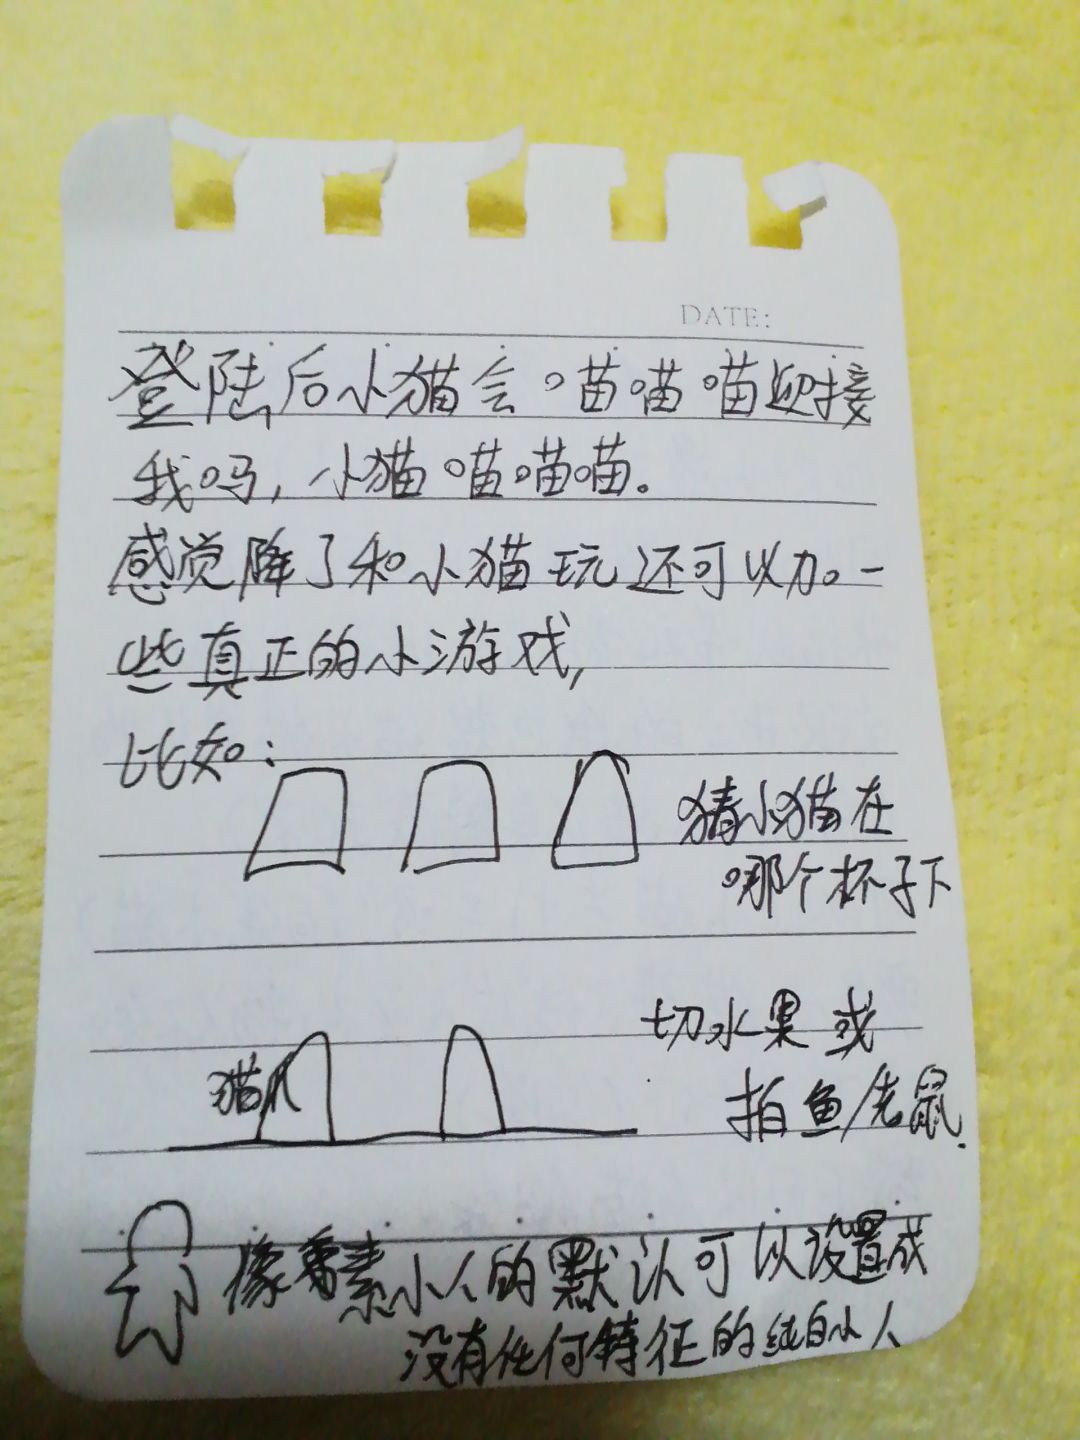 DATE:
登陆后小猫会喵喵喵迎接
我吗,小猫喵喵喵。
感觉降了和小猫玩还可以加。一
些真正的小游戏,
比如:
猜小猫在
哪个杯子下
切水果或
猫爪
拍鱼/老鼠.
像素小人的默认可以设置成
没有任何特征的纯白小人